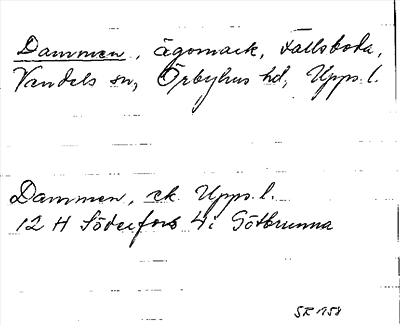 Dammen, ägomark, Fallsboda,
Vendels sn, Örbyhus hd, Upps. l.
Dammen, ek Upps. l.
12 H Söderfors 4i Götbrunna
SR 1958